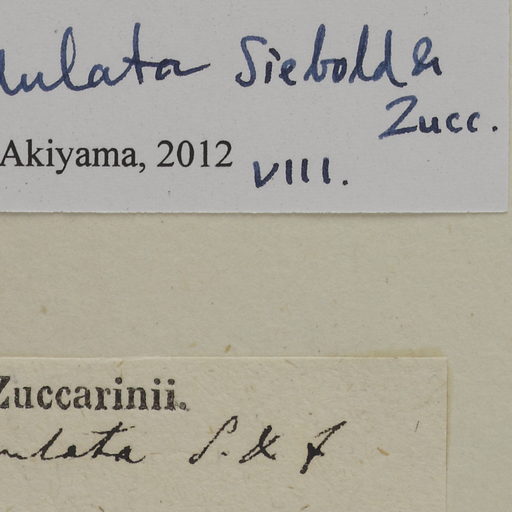 ulata Siebold &
Zucc.
Akiyama, 2012 VIII.
Zuccarinii.
ulata S. & Z